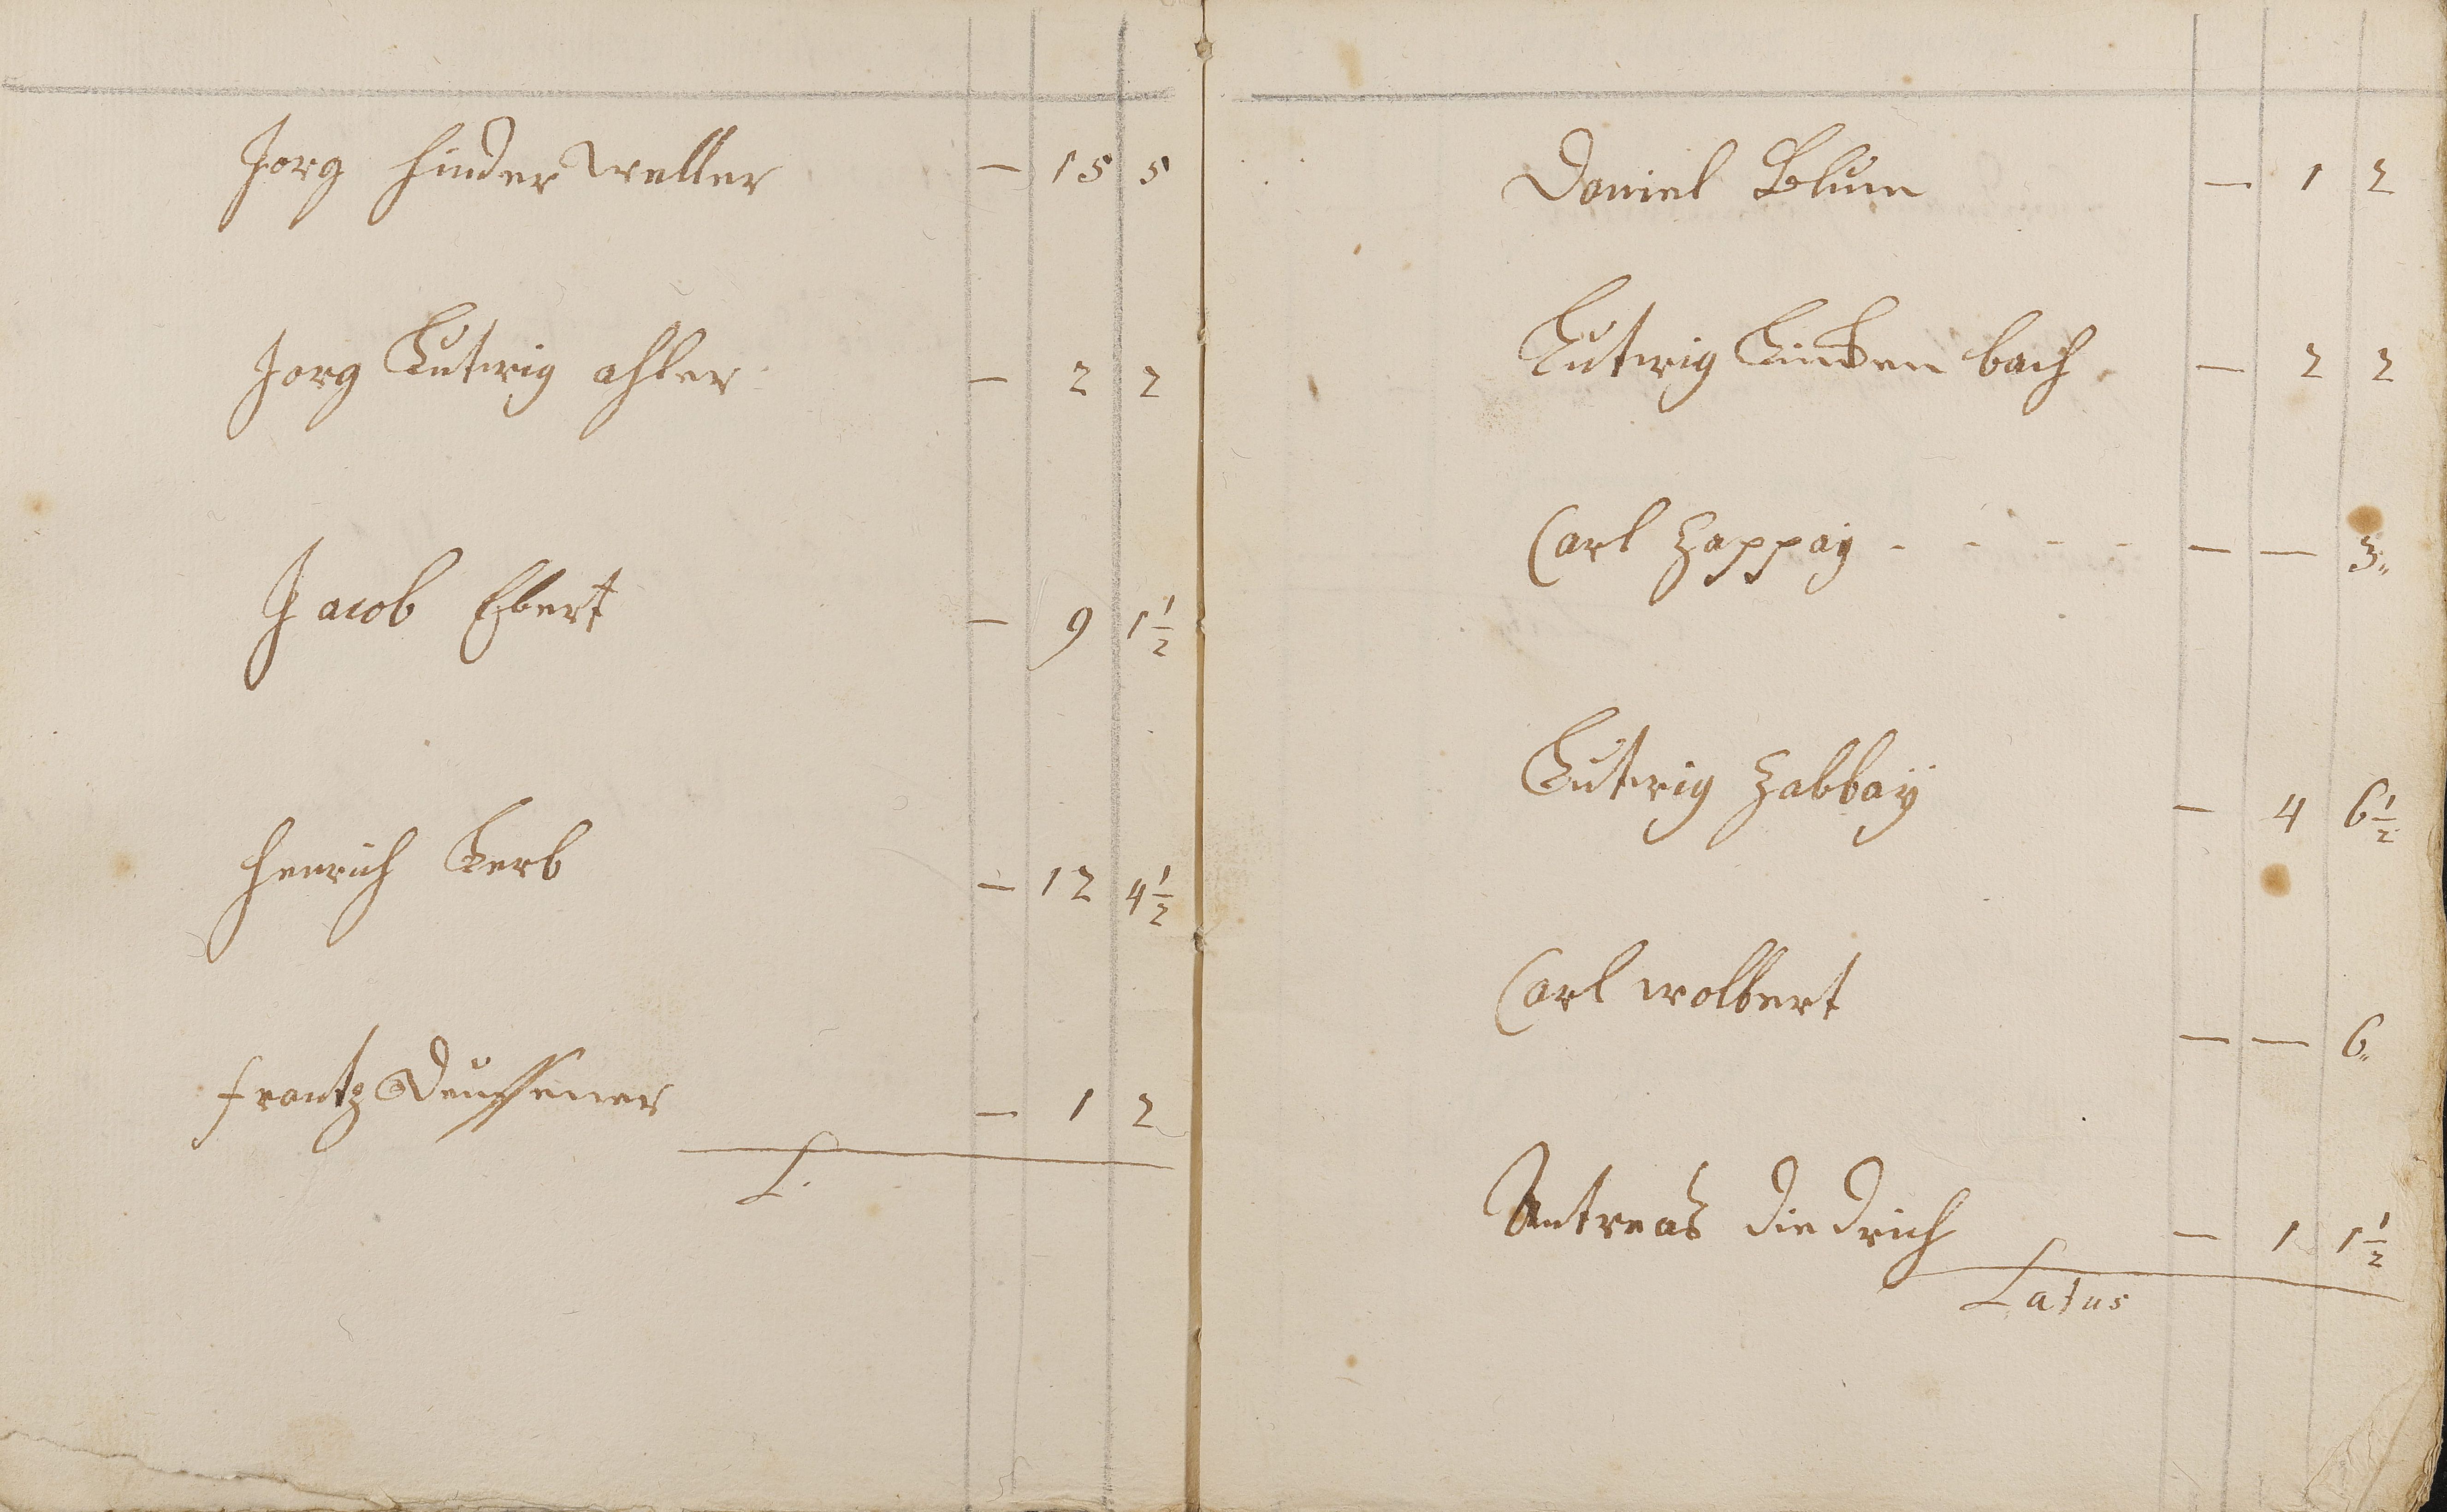 Jorg Hinder Weller — 15 5
Jorg Lutwig ahler — 2 2
Jacob Ebert — 9 1½
Henrich Kerb — 12 4½
Frantz — 1 2
L.
Daniel Blum — 1 2
Lutwig Linden bach — 2 2
Carl Zappay - - - - — — 3"
Lutwig Zabbaÿ — 4 6½
Carl wolbert — — 6"
Antreas Diedrich — 1 1½
Latus